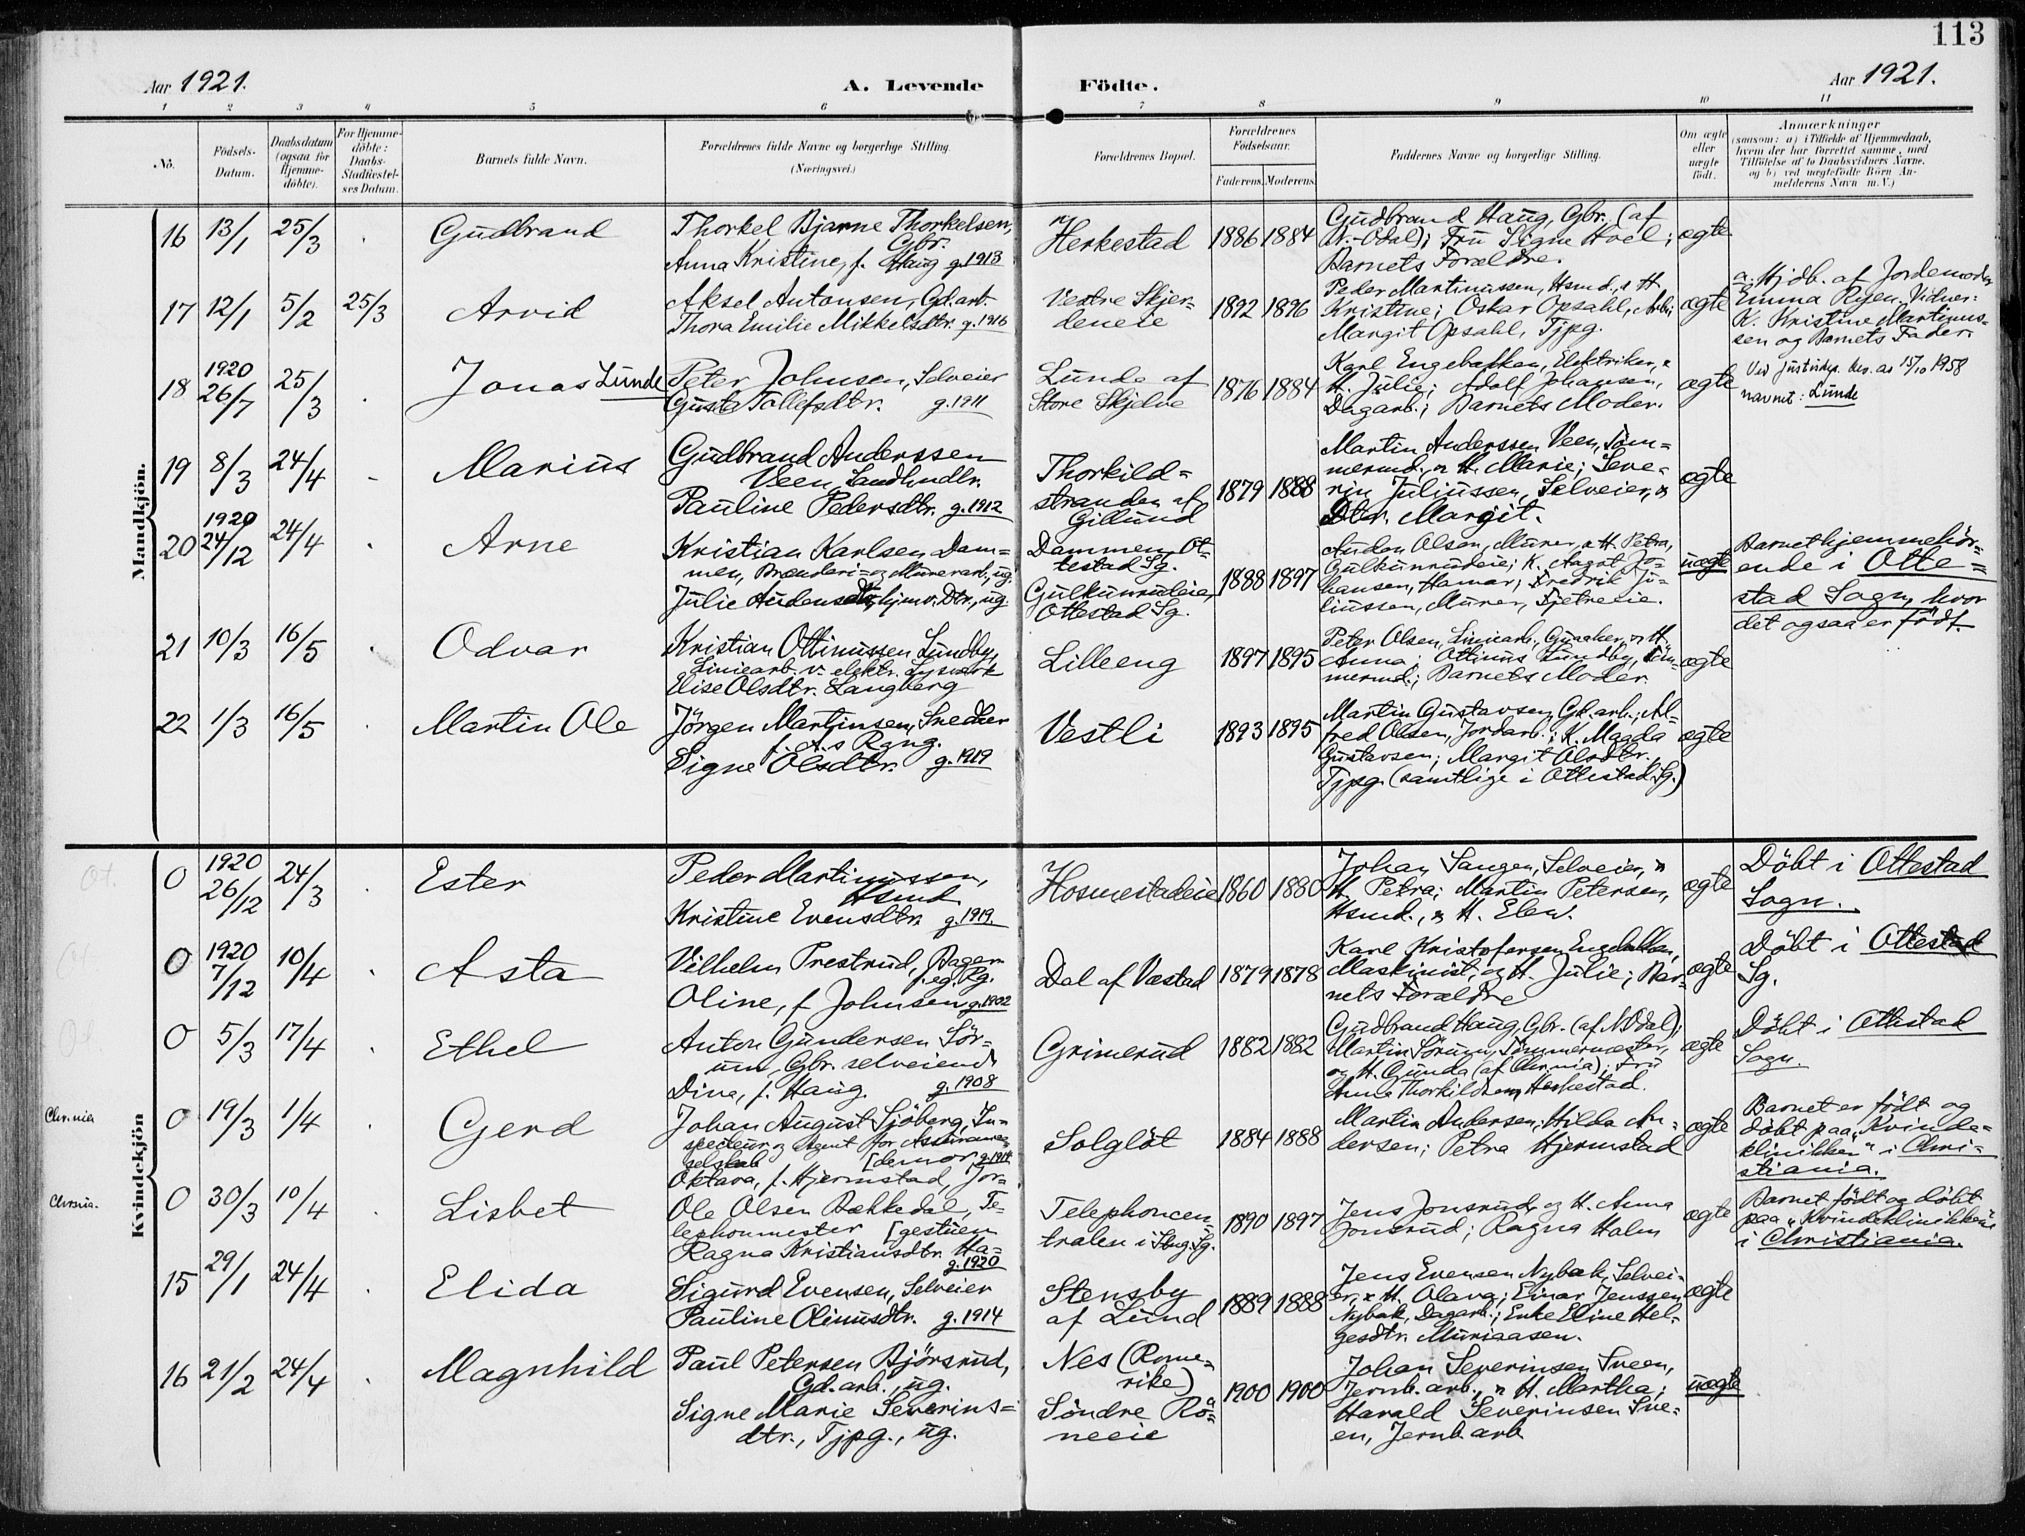 113
Aar 1921.
A. Levende
Födte.
Aar 1921.
1 2 3 4 5 6 7 8 9 10 11
Nö.
Födsels-Datum.
Daabsdatum (ogsaa for Hjemme-döbte).
For Hjemme-döbte: Daabs-Stadfæstel-ses Datum.
Barnets fulde Navn.
Forældrenes fulde Navne og borgerlige Stilling.
(Næringsvei.)
Forældrenes Bopæl.
Forældrenes Födselsaar.
Faderens. Moderens.
Faddernes Navne og borgerlige Stilling.
Om ægte eller uægte födt.
Anmærkninger
(saasom: a) i Tilfælde af Hjemmedaab,
hvem der har forrettet samme, med
Tilföielse af to Daabsvidners Navne.
og b) ved uægtefödte Börn An-
melderens Navn m. V.)
Mandkjön.
16 13/1 25/3 Gudbrand
Thorkel Bjarne Thorkelsen,
Gbr.
Anna Kristine, f. Haug g. 1913
Herkestad
1886 1884
Gudbrand Haug, Gbr. (af
N.-Odal); Fru Signe Hoel;
Barnets Forældre.
ægte
17 12/1 5/2 25/3 Arvid
Aksel Antonsen, Gd.arb.
Thora Emilie Mikkelsdtr. g. 1916
Vestre Skjer-
deneie
1892 1896
Peder Martinussen, Hsmd., & H.
Kristine; Oskar Opsahl, Arb.;
Margit Opsahl, Tjpg.
ægte
a. Hjdb. af Jordemoder
Emma Ryen. Vidner:
K. Kristine Martinus-
sen og Barnets Fader.
18 1920 26/7 25/3 Jonas Lunde
Peter Johnsen, Selveier
Guste Tollefsdtr. g. 1911
Lunde af
Store Skjelve
1876 1884
Karl Engebakken, Elektriker, &
H. Julie; Adolf Johansen,
Dagarb.; Barnets Moder.
ægte
Ved justisdep. bev. av 15/10 1958
navnet: Lunde
19 8/3 24/4 Marius
Gudbrand Anderssen
Veen, Landhndlr.
Pauline Pedersdtr. g. 1912
Thorkild=
stranden af
Gillund
1879 1888
Martin Anderssen Veen, Töm=
mermd. & H. Marie; Seve-
rin Juliussen, Selveier, &
Dtr. Margit.
ægte
20 1920 24/12 24/4 Arne
Kristian Karlsen Dam=
men, Brænderi= og Murerarb., ug.
Julie Audensdtr, hjmv. Dtr., ug
Dammen, Ot-
testad Sg.
Gulkunruleie,
Ottestad Sg.
1888 1897
Auden Olsen, Murer, & H. Petra,
Gulkunrudeie; K. Aagot Jo-
hansen, Hamar; Fredrik Ju-
liussen, Murer, Fjetreeie.
uægte
Barnet hjemmehör=
ende i Otte=
stad Sogn, hvor
det ogsaa er födt.
21 10/3 16/5 Odvar
Kristian Ottinussen Lundby,
Liniearb. v. elektr. Lysværk
Elise Olsdtr. Langberg
Lilleeng
1897 1895
Peter Olsen, Liniearb., & H.
Anna; Ottinus Lundby, Töm-
mermd.; Barnets Moder.
ægte
22 1/3 16/5 Martin Ole
Jörgen Martinsen, Snedker
f. A.s Rgng.
Signe Olsdtr. g. 1919
Vestli
1893 1895
Martin Gustavsen, Gd.arb.; Al-
fred Olsen, Jordarb.; K. Magda
Gustavsen; Margit Olsdtr.
Tjpg. (samtlige i Ottestad Sg.)
ægte
Kvindekjön
Ot.
0 1920 26/12 24/3 Ester
Peder Martinussen,
Hsmd.
Kristine Evensdtr. g. 1919.
Hosmestadeie
1860 1880
Johan Sangen, Selveier, &
H. Petra; Martin Petersen,
Hsmd., & H. Elen.
ægte
Döbt i Ottestad
Sogn.
Ot
0 1920 7/12 10/4 Asta
Vilhelm Prestrud, Bager
f. eg. Rg.
Oline, f. Johnsen g. 1902
Dal af Væstad
1879 1878
Karl Kristofersen Engebakken,
Maskinist, og H. Julie; Bar-
nets Forældre
ægte
Döbt i Ottestad
Sg.
Ot.
0 5/3 17/4 Ethel
Anton Gundersen Sör-
um, Gbr. selveiende
Dina, f. Haug. g. 1908
Grimerud
1882 1882
Gudbrand Haug, Gbr. (af N.Odal);
Martin Sörum, Tömmermester,
og H. Gunda (af Chr.nia); Fru
Anna Thorkildsen, Herkestad.
ægte
Döbt i Ottestad
Sogn.
Chr.nia
0 19/3 1/4 Gerd
Johan August Sjöberg, In-
specteur og Agent for Assurance-
selskab [demor g. 1914
Oktava, f. Hjermstad, Jor-
Solgløt
1884 1888
Martin Andersen; Hilda An-
dersen; Petra Hjermstad
ægte
Barnet er födt og
döbt paa „Kvinde-
klinikken“ i Chri-
stiania.
Chr.nia.
0 30/3 10/4 Lisbet
Ole Olsen Bækkedal, Te-
lephonmester [gestuen
Ragna Kristiansdtr. Ha-
g. 1920
Telephoncen-
tralen i Stng. Sg.
1890 1897
Jens Jonsrud, og H. Anna
Jonsrud; Ragna Holm
ægte
Barnet födt og döbt
paa „Kvindeklinikken“
i Christiania.
15 29/1 24/4 Elida
Sigurd Evensen, Selveier
Pauline Olinusdtr. g. 1914
Stensby
af Lund
1889 1888
Jens Evensen Nybak, Selvei-
er, & H. Olava; Einar Jenssen
Nybak, Dagarb.; Enke Eline Hel-
gesdtr. Muriaasen.
ægte
16 21/2 24/4 Magnhild
Paul Petersen Björsrud,
Gd.arb., ug.
Signe Marie Severins=
dtr., Tjpg., ug.
Nes (Rome-
rike)
Söndre Rö-
neeie
1900 1900
Johan Severinsen Sveen,
Jernb.arb., & H. Martha;
Harald Severinsen Sve-
en, Jernb.arb.
uægte